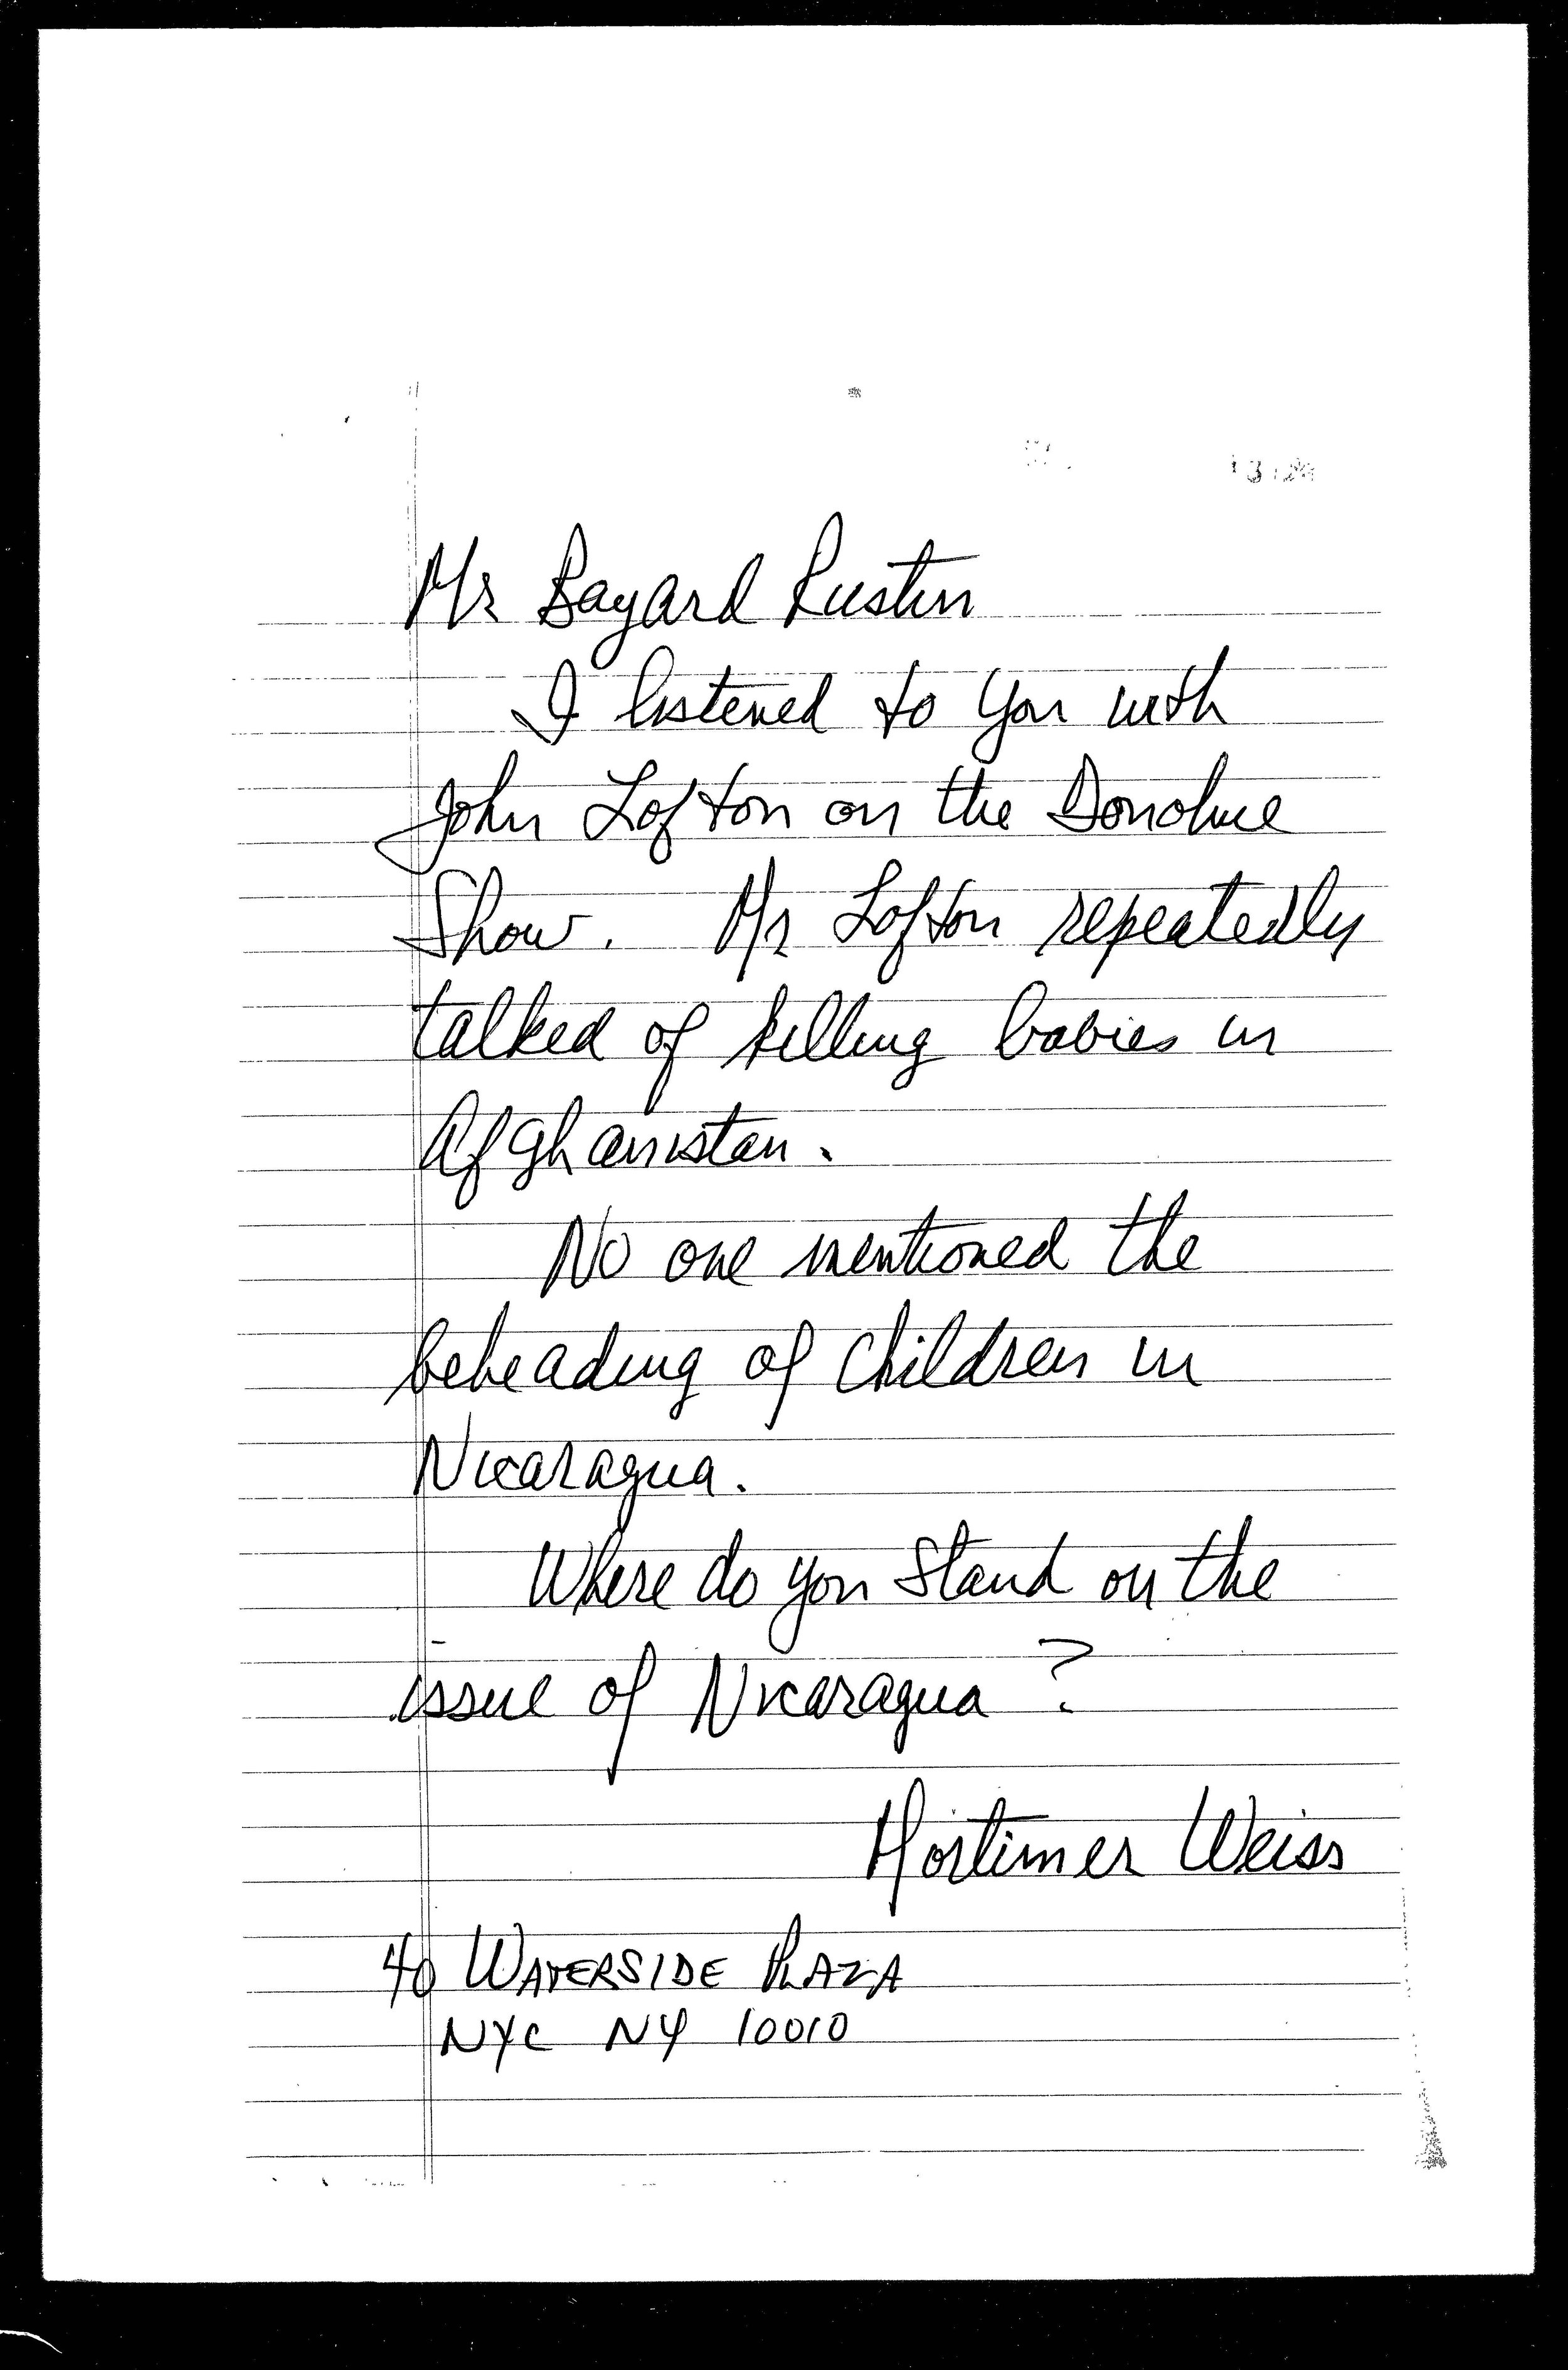 Mr Bayard Rustin
I listened to you with
John Lofton on the Donohue
Show. Mr Lofton repeatedly
talked of killing babies in
Afghanistan.
No one mentioned the
beheading of children in
Nicaragua.
Where do you stand on the
issue of Nicaragua?
Mortimer Weiss
40 WATERSIDE PLAZA
NYC NY 10010